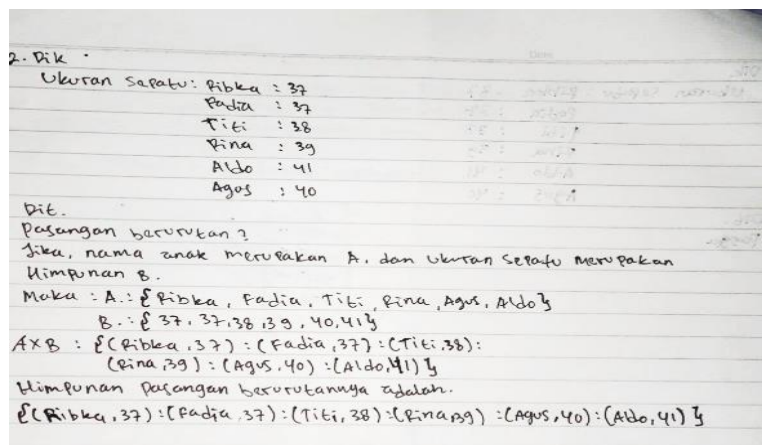 2. Dik
Ukuran Sepatu : Ribka : 37
Fadia : 37
Titi : 38
Rina : 39
Aldo : 41
Agus : 40
Dit.
Pasangan berurutan ?
Jika, nama anak merupakan A. dan ukuran sepatu merupakan
Himpunan B.
Maka : A. : { Ribka, Fadia, Titi, Rina, Agus, Aldo }
B. : { 37, 37, 38, 39, 40, 41 }
A x B : { (Ribka, 37) : (Fadia, 37) : (Titi, 38) :
(Rina, 39) : (Agus, 40) : (Aldo, 41) }
Himpunan pasangan berurutannya adalah.
{ (Ribka, 37) : (Fadia, 37) : (Titi, 38) : (Rina, 39) : (Agus, 40) : (Aldo, 41) }